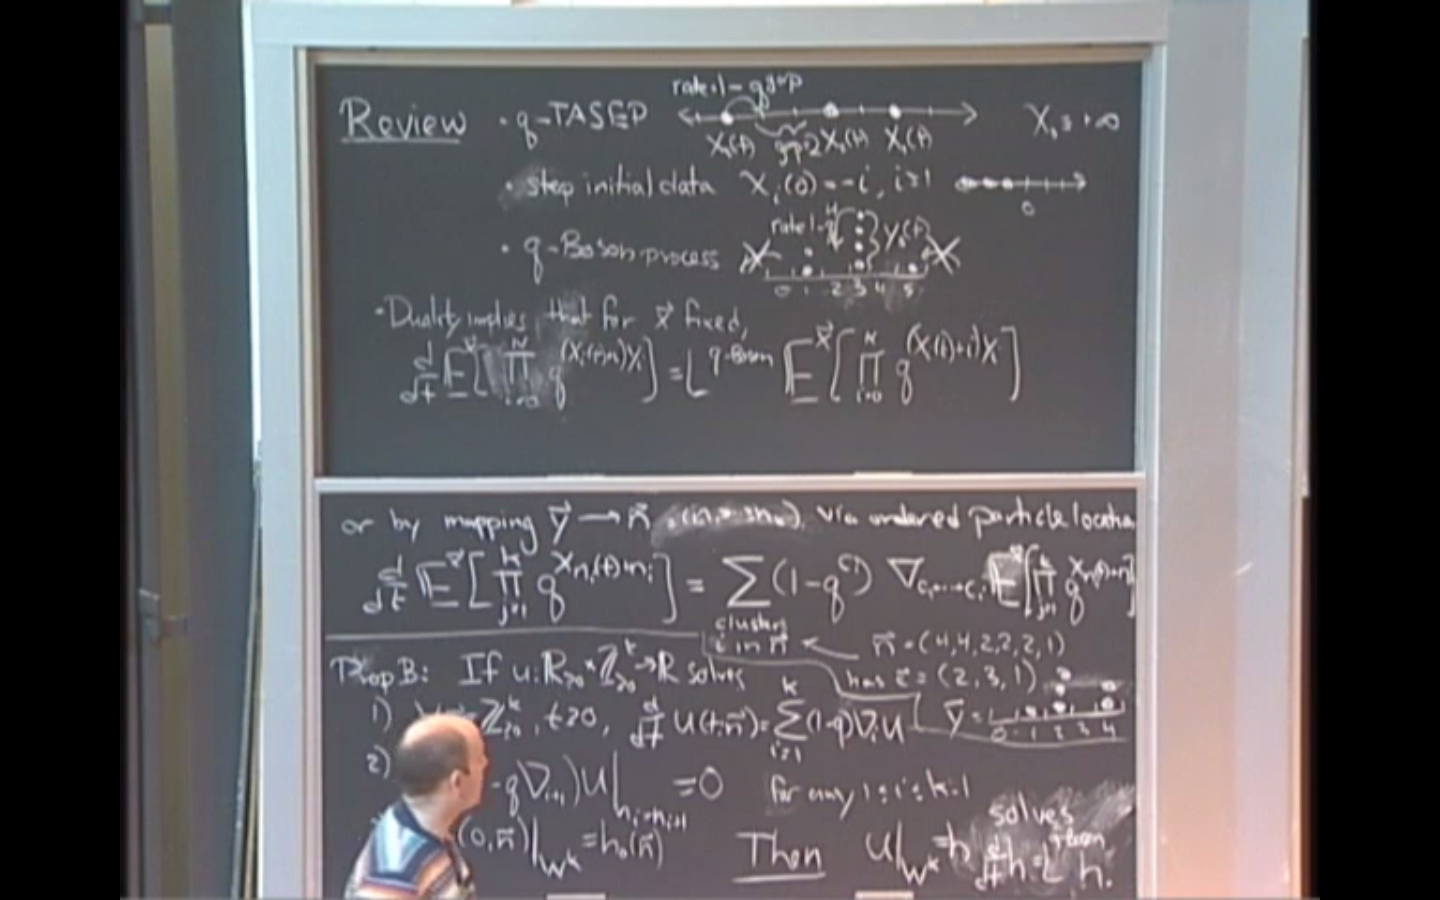 Review · q-TASEP rate 1 - q^gap X_0 ≡ +∞
gap=2 X_2(t) X_1(t)
· step initial data X_i(0) = -i, i≥1 0
· q-Boson process rate 1-q^4
0 1 2 3 4 5
· Duality implies that for x⃗ fixed,
d/dt E^x⃗ [ ∏_{i=0}^N q^{(X_i(t)+i)Y_i} ] = L^{q-Boson} E^x⃗ [ ∏_{i=0}^N q^{(X_i(t)+i)Y_i} ]
or by mapping y⃗ → n⃗ via ordered particle locations
d/dt E^x⃗ [ ∏_{j=1}^k q^{X_{n_j}(t)+n_j} ] = ∑ (1-q^{c_i}) ∇_{c_1+⋯+c_i} E^x⃗ [ ∏_{j=1}^k q^{X_{n_j}(t)+n_j} ]
clusters
i in n⃗ ← n⃗ = (4,4,2,2,2,1)
Prop B: If u: R_{≥0} × Z_{≥0}^k → R solves has c⃗ = (2,3,1)
1) Z_{≥0}^k, t≥0, d/dt u(t,n⃗) = ∑_{i=1}^k (1-q)∇_i u y⃗ = 0 1 2 3 4
2) -q∇_{i+1}) u|_{n_i=n_{i+1}} = 0 for any 1≤i≤k-1
(0,n⃗)|_{W^k} = h_0(n⃗) Then u|_{W^k} = h solves d/dt h = L^{q-Boson} h.